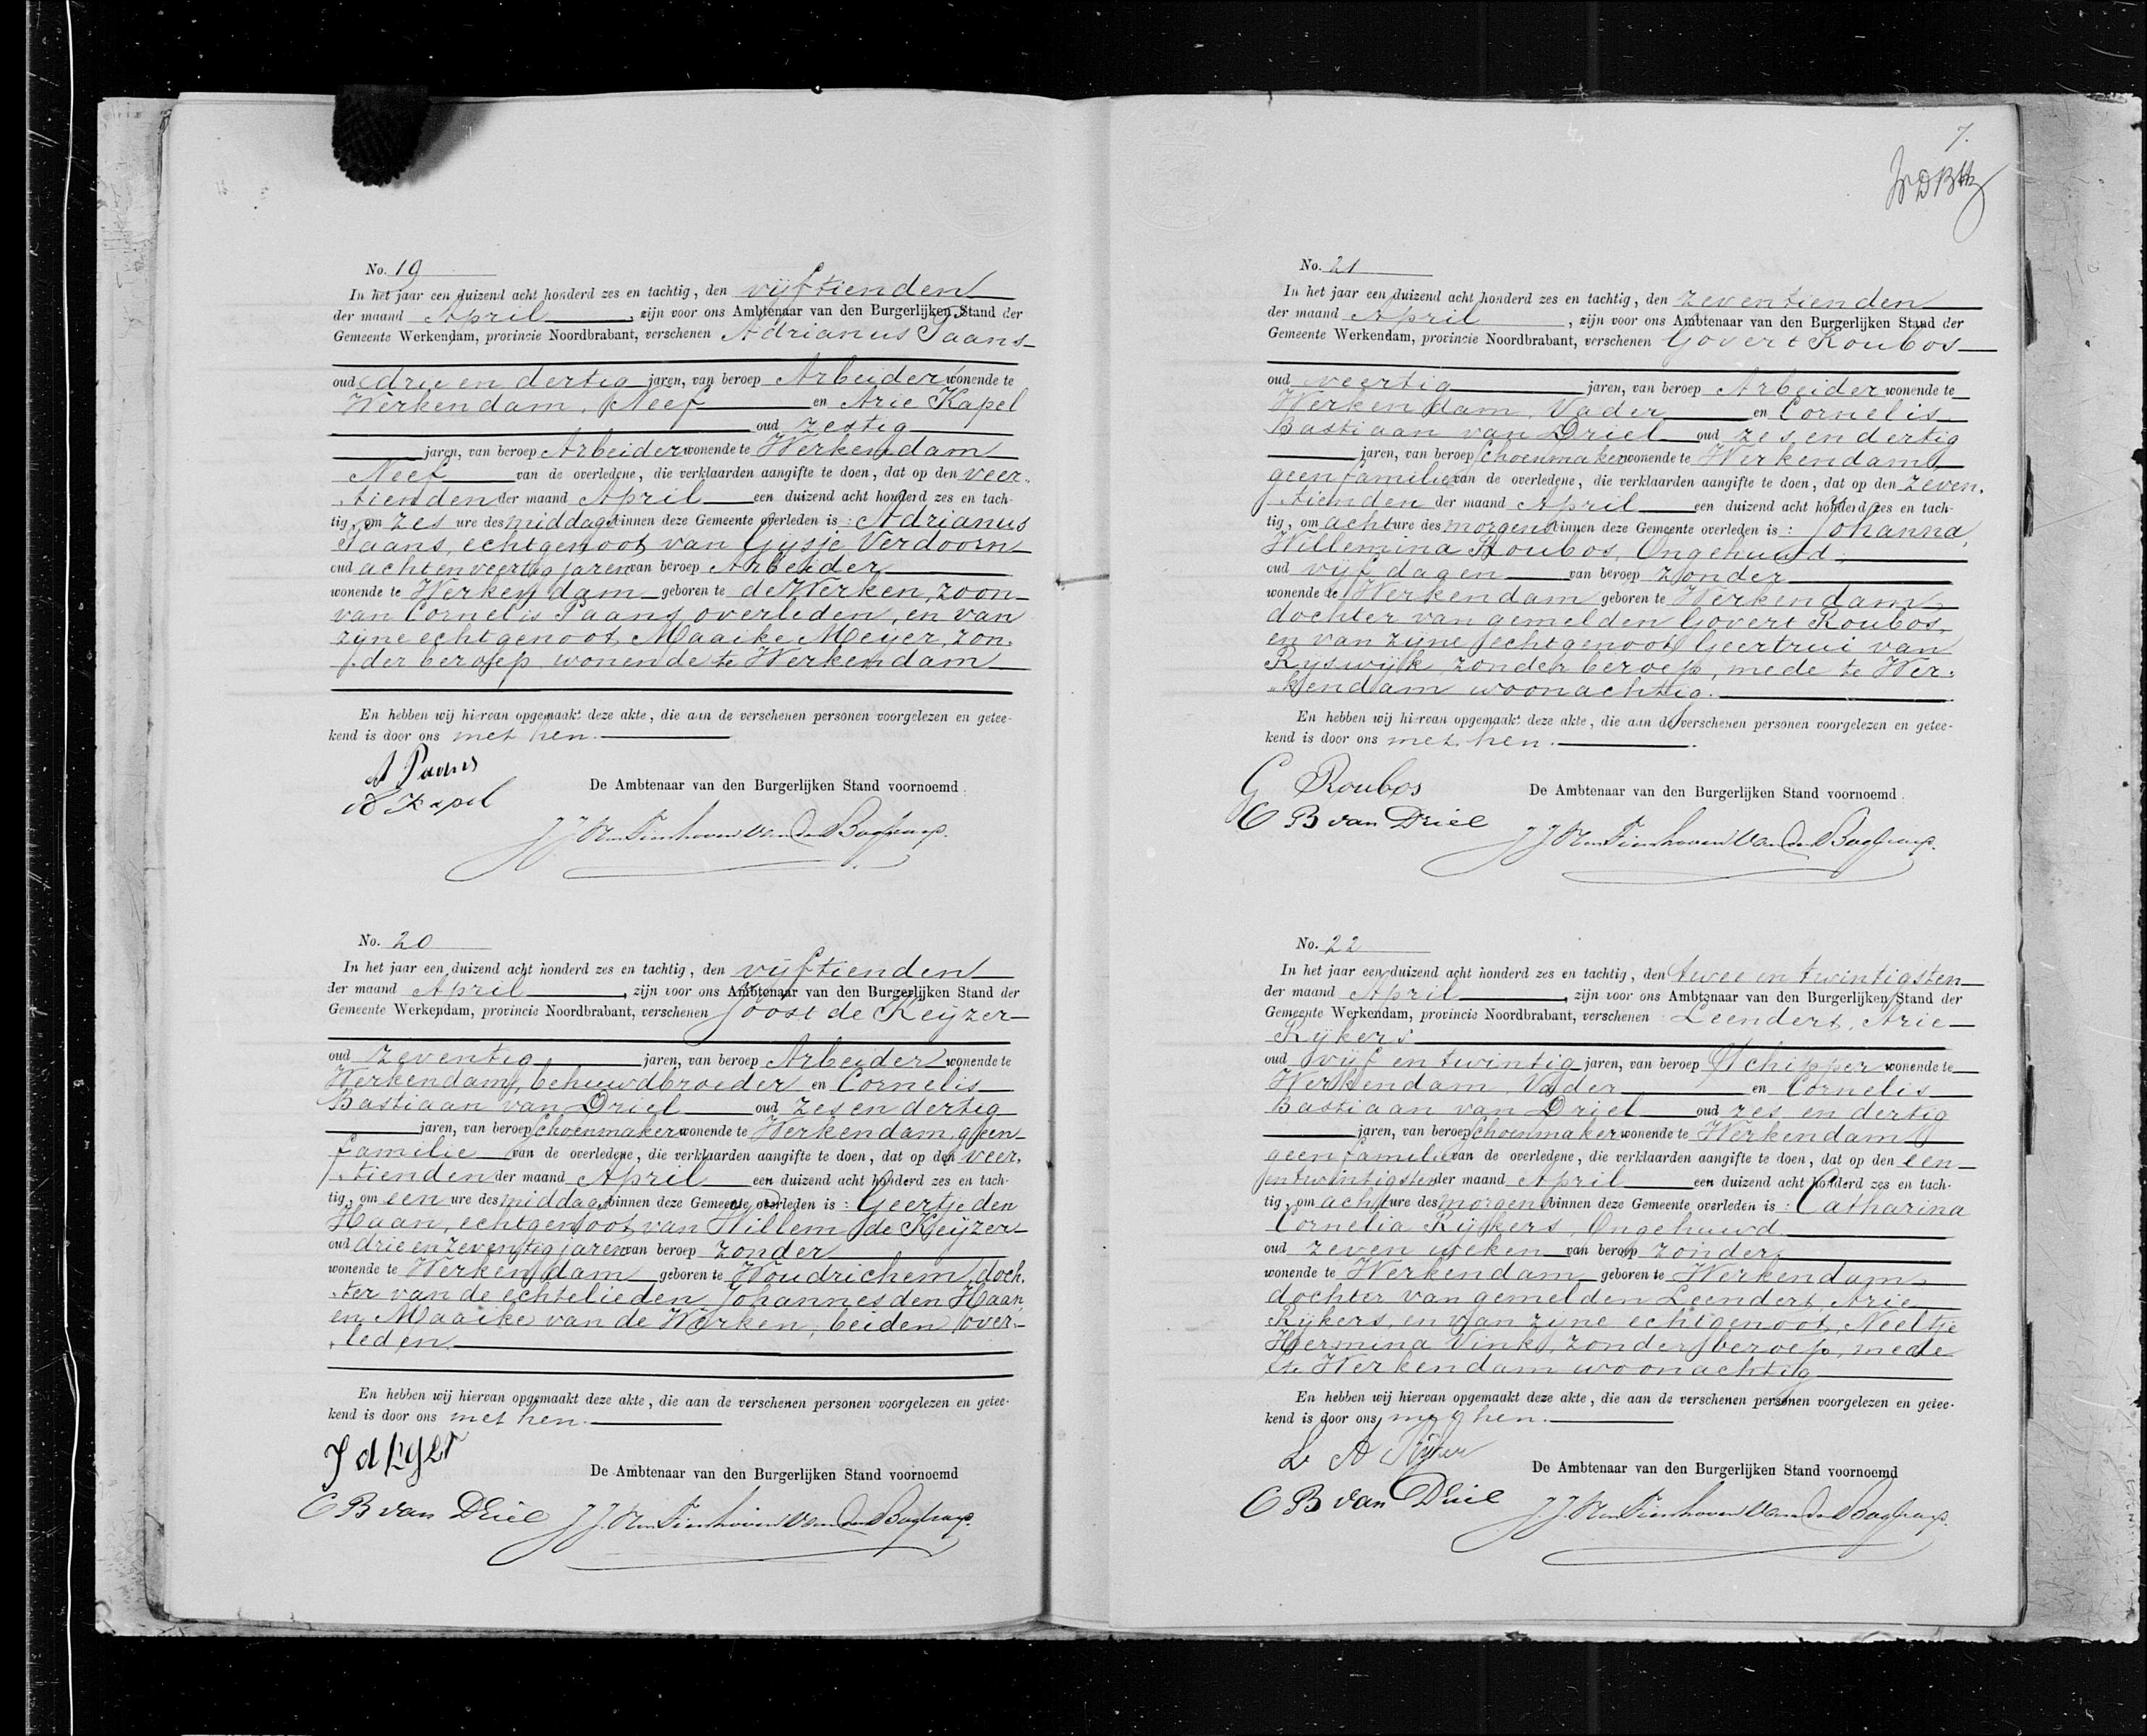 No. 19
In het jaar een duizend acht honderd zes en tachtig, den vijftienden
der maand April, zijn voor ons Ambtenaar van den Burgerlijken Stand der
Gemeente Werkendam, provincie Noordbrabant, verschenen Adrianus Paans
oud drie en dertig jaren, van beroep Arbeider wonende te
Werkendam, Neef en Arie Kapel
oud zestig
jaren, van beroep Arbeider wonende te Werkendam
Neef van de overledene, die verklaarden aangifte te doen, dat op den veer-
tienden der maand April een duizend acht honderd zes en tach-
tig, om zes ure des middags binnen deze Gemeente overleden is: Adrianus
Paans, echtgenoot van Gijsje Verdoorn
oud achtenveertig jaren van beroep Arbeider
wonende te Werkendam geboren te de Werken, zoon
van Cornelis Paans, overleden, en van
zijne echtgenoot, Maaike Meijer, zon-
der beroep wonende te Werkendam
En hebben wij hiervan opgemaakt deze akte, die aan de verschenen personen voorgelezen en getee-
kend is door ons met hen.
A Paans
A Kapel
De Ambtenaar van den Burgerlijken Stand voornoemd.
No. 20
In het jaar een duizend acht honderd zes en tachtig, den vijftienden
der maand April, zijn voor ons Ambtenaar van den Burgerlijken Stand der
Gemeente Werkendam, provincie Noordbrabant, verschenen Joost de Keijzer
oud zeventig jaren, van beroep Arbeider wonende te
Werkendam, behuwdbroeder en Cornelis
Bastiaan van Driel oud zes en dertig
jaren, van beroep Schoenmaker wonende te Werkendam, geen
familie van de overledene, die verklaarden aangifte te doen, dat op den veer-
tienden der maand April een duizend acht honderd zes en tach-
tig, om een ure des middags binnen deze Gemeente overleden is: Geertje den
Haan, echtgenoot van Willem de Keijzer
oud drie en zeventig jaren van beroep zonder
wonende te Werkendam geboren te Woudrichem, doch-
ter van de echtelieden Johannes den Haan
en Maaike van de Werken, beiden over-
leden.
En hebben wij hiervan opgemaakt deze akte, die aan de verschenen personen voorgelezen en getee-
kend is door ons met hen.
De Ambtenaar van den Burgerlijken Stand voornoemd
C B van Driel
7.
No. 21
In het jaar een duizend acht honderd zes en tachtig, den zeventienden
der maand April, zijn voor ons Ambtenaar van den Burgerlijken Stand der
Gemeente Werkendam, provincie Noordbrabant, verschenen Govert Roubos
oud veertig jaren, van beroep Arbeider wonende te
Werkendam, Vader en Cornelis
Bastiaan van Driel oud zes en dertig
jaren, van beroep Schoenmaker wonende te Werkendam,
geen familie van de overledene, die verklaarden aangifte te doen, dat op den zeven-
tienden der maand April een duizend acht honderd zes en tach-
tig, om acht ure des morgens binnen deze Gemeente overleden is: Johanna,
Willemina Roubos, Ongehuwd,
oud vijf dagen van beroep zonder
wonende te Werkendam geboren te Werkendam,
dochter van gemelden Govert Roubos,
en van zijne echtgenoot Geertrui van
Rijswijk, zonder beroep, mede te Wer-
kendam woonachtig.
En hebben wij hiervan opgemaakt deze akte, die aan de verschenen personen voorgelezen en getee-
kend is door ons met hen.
G Roubos
De Ambtenaar van den Burgerlijken Stand voornoemd.
C B van Driel
No. 22
In het jaar een duizend acht honderd zes en tachtig, den twee en twintigsten
der maand April, zijn voor ons Ambtenaar van den Burgerlijken Stand der
Gemeente Werkendam, provincie Noordbrabant, verschenen Leendert, Arie
Rijkers
oud vijf en twintig jaren, van beroep Schipper wonende te
Werkendam, Vader en Cornelis
Bastiaan van Driel oud zes en dertig
jaren, van beroep Schoenmaker wonende te Werkendam
geen familie van de overledene, die verklaarden aangifte te doen, dat op den een-
entwintigsten der maand April een duizend acht honderd zes en tach-
tig, om acht ure des morgens binnen deze Gemeente overleden is: Catharina
Cornelia Rijkers, Ongehuwd
oud zeven weken van beroep zonder,
wonende te Werkendam geboren te Werkendam,
dochter van gemelden Leendert, Arie
Rijkers, en van zijne echtgenoot, Neeltje
Hermina Vink, zonder beroep, mede
te Werkendam woonachtig
En hebben wij hiervan opgemaakt deze akte, die aan de verschenen personen voorgelezen en getee-
kend is door ons met hen.
De Ambtenaar van den Burgerlijken Stand voornoemd
C B van Driel